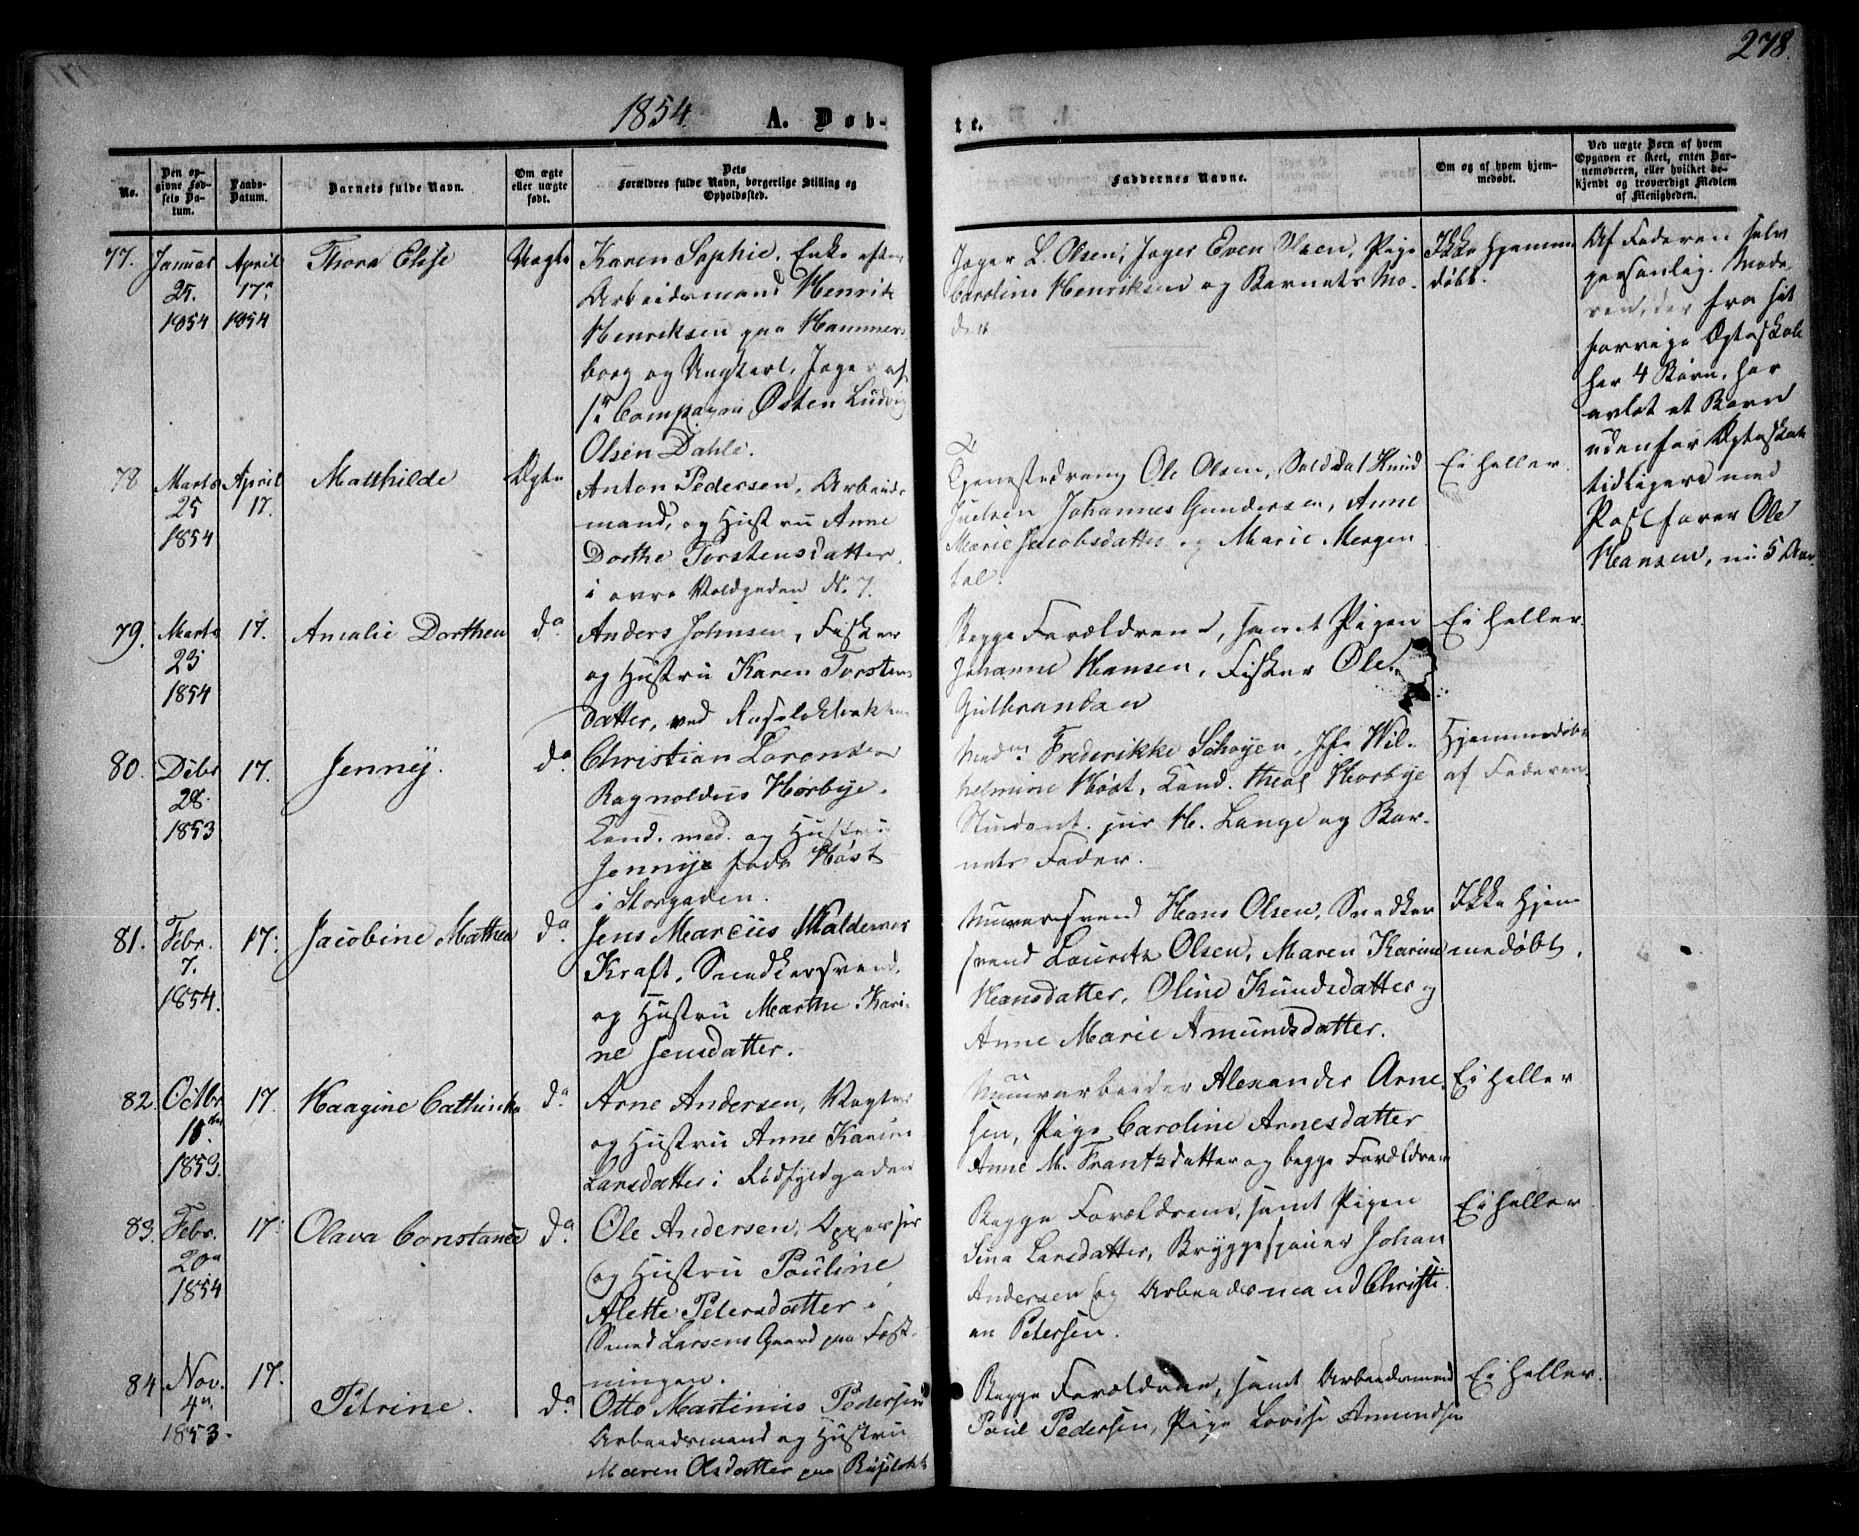 278.
1854
A. Døb-
te.
No.
Den op-
givne Fød-
sels Da-
tum.
Daabs-
Datum.
Barnets fulde Navn.
Om ægte
eller uægte
født.
Dets
Forældres fulde Navn, borgerlige Stilling og
Opholdssted.
Faddernes Navne.
Om og af hvem hjem-
medøbt.
Ved uægte Børn af hvem
Opgaven er skeet, enten Bar-
nemoderen, eller hvilket be-
kjendt og troværdigt Medlem
af Menigheden.
77.
Januar
25.
1854
April
17de
1854
Thora Elise
Uægte
Karen Sophie, Enke efter
Arbeidsmand Henrik
Henriksen paa Hammers-
borg og Ungkarl, Jæger af
1ste Compagni Østen Ludvig
Olsen Dahle.
Jæger L. Olsen, Jæger Even Olsen, Pige
Caroline Henriksen og Barnets Mo-
der
Ikke hjemme
døbt.
Af Faderen selv
personlig. Mode-
ren, der fra sit
forrige Ægteskab
har 4 Børn, har
avlet et Barn
udenfor Ægteskab
tidligere med
Postfører Ole
Hansen, nu 5 Aar.
78
Marts
25
1854
April
17.
Matthilde
Ægte
Anton Pedersen, Arbeids-
mand, og Hustru Anne
Dorthe Torstensdatter,
i øvre Voldgaden N. 7.
Tjenestedreng Ole Olsen, Soldat Knud
Juelsen Johannes Gundersen, Anne
Marie Jacobsdatter og Marie Mergen
tal.
Ei heller.
79.
Marts
23
1854
17.
Amalie Dorthea
do
Anders Johnsen, Fisker
og Hustru Karen Torstens-
datter, ved
Begge Forældrene, samt Pigen
Johanne Hansen, Fisker Ole
Gulbrandsen
Ei heller.
80.
Debr
28.
1853
17.
Jenny.
do
Christian Lorentz
Ragnoldus Hørbye,
Cand. med. og Hustru
Jenny født Høst
i Storgaden.
Madm Frederikke Schøyen, Jfr Wil-
helmine Høst, Cand. theol Hørbye
Student. jur H. Lange og Bar-
nets Fader.
Hjemmedøbt
af Faderen.
81.
Febr.
7.
1854.
17.
Jacobine Mathea
do
Jens Marcus Waldemar
Kraft, Snedkersvend,
og Hustru Marthe Kari-
ne Jensdatter.
Muursvend Hans Olsen, Snedker
svend Lauritz Olsen, Maren Karine
Hansdatter, Oline Knudsdatter og
Anne Marie Amundsdatter.
Ikke hjem
medøbt.
82.
Octbr
1853.
17.
Haagine Cathinka
do
Arne Andersen, Vægter
og Hustru Anne Karine
Larsdatter i Rødfyldgaden
Muurarbeider Alexander Arne
sen, Pige Caroline Arnesdatter
Anne M. Frantzdatter og begge Forældrene
Ei heller
83.
Febr.
20de
1854
17.
Olava Constance
do
Ole Andersen, Opperser
og Hustru Pauline
Alette Petersdatter i
Svend Larsens Gaard paa Fæst-
ningen.
Begge Forældrene, samt Pigen
Sina Larsdatter, Bryggesjouer Johan
Andersen og Arbeidsmand Christi
an Petersen.
Ei heller.
84
Nov.
4de
1853.
17.
Petrine.
do
Otto Martinius Pedersen
Arbeidsmand og Hustru
Maren Olsdatter paa
Begge Forældrene, samt Arbeidsmand
Paul Pedersen, Pige Lovise Amundsen
Ei heller.